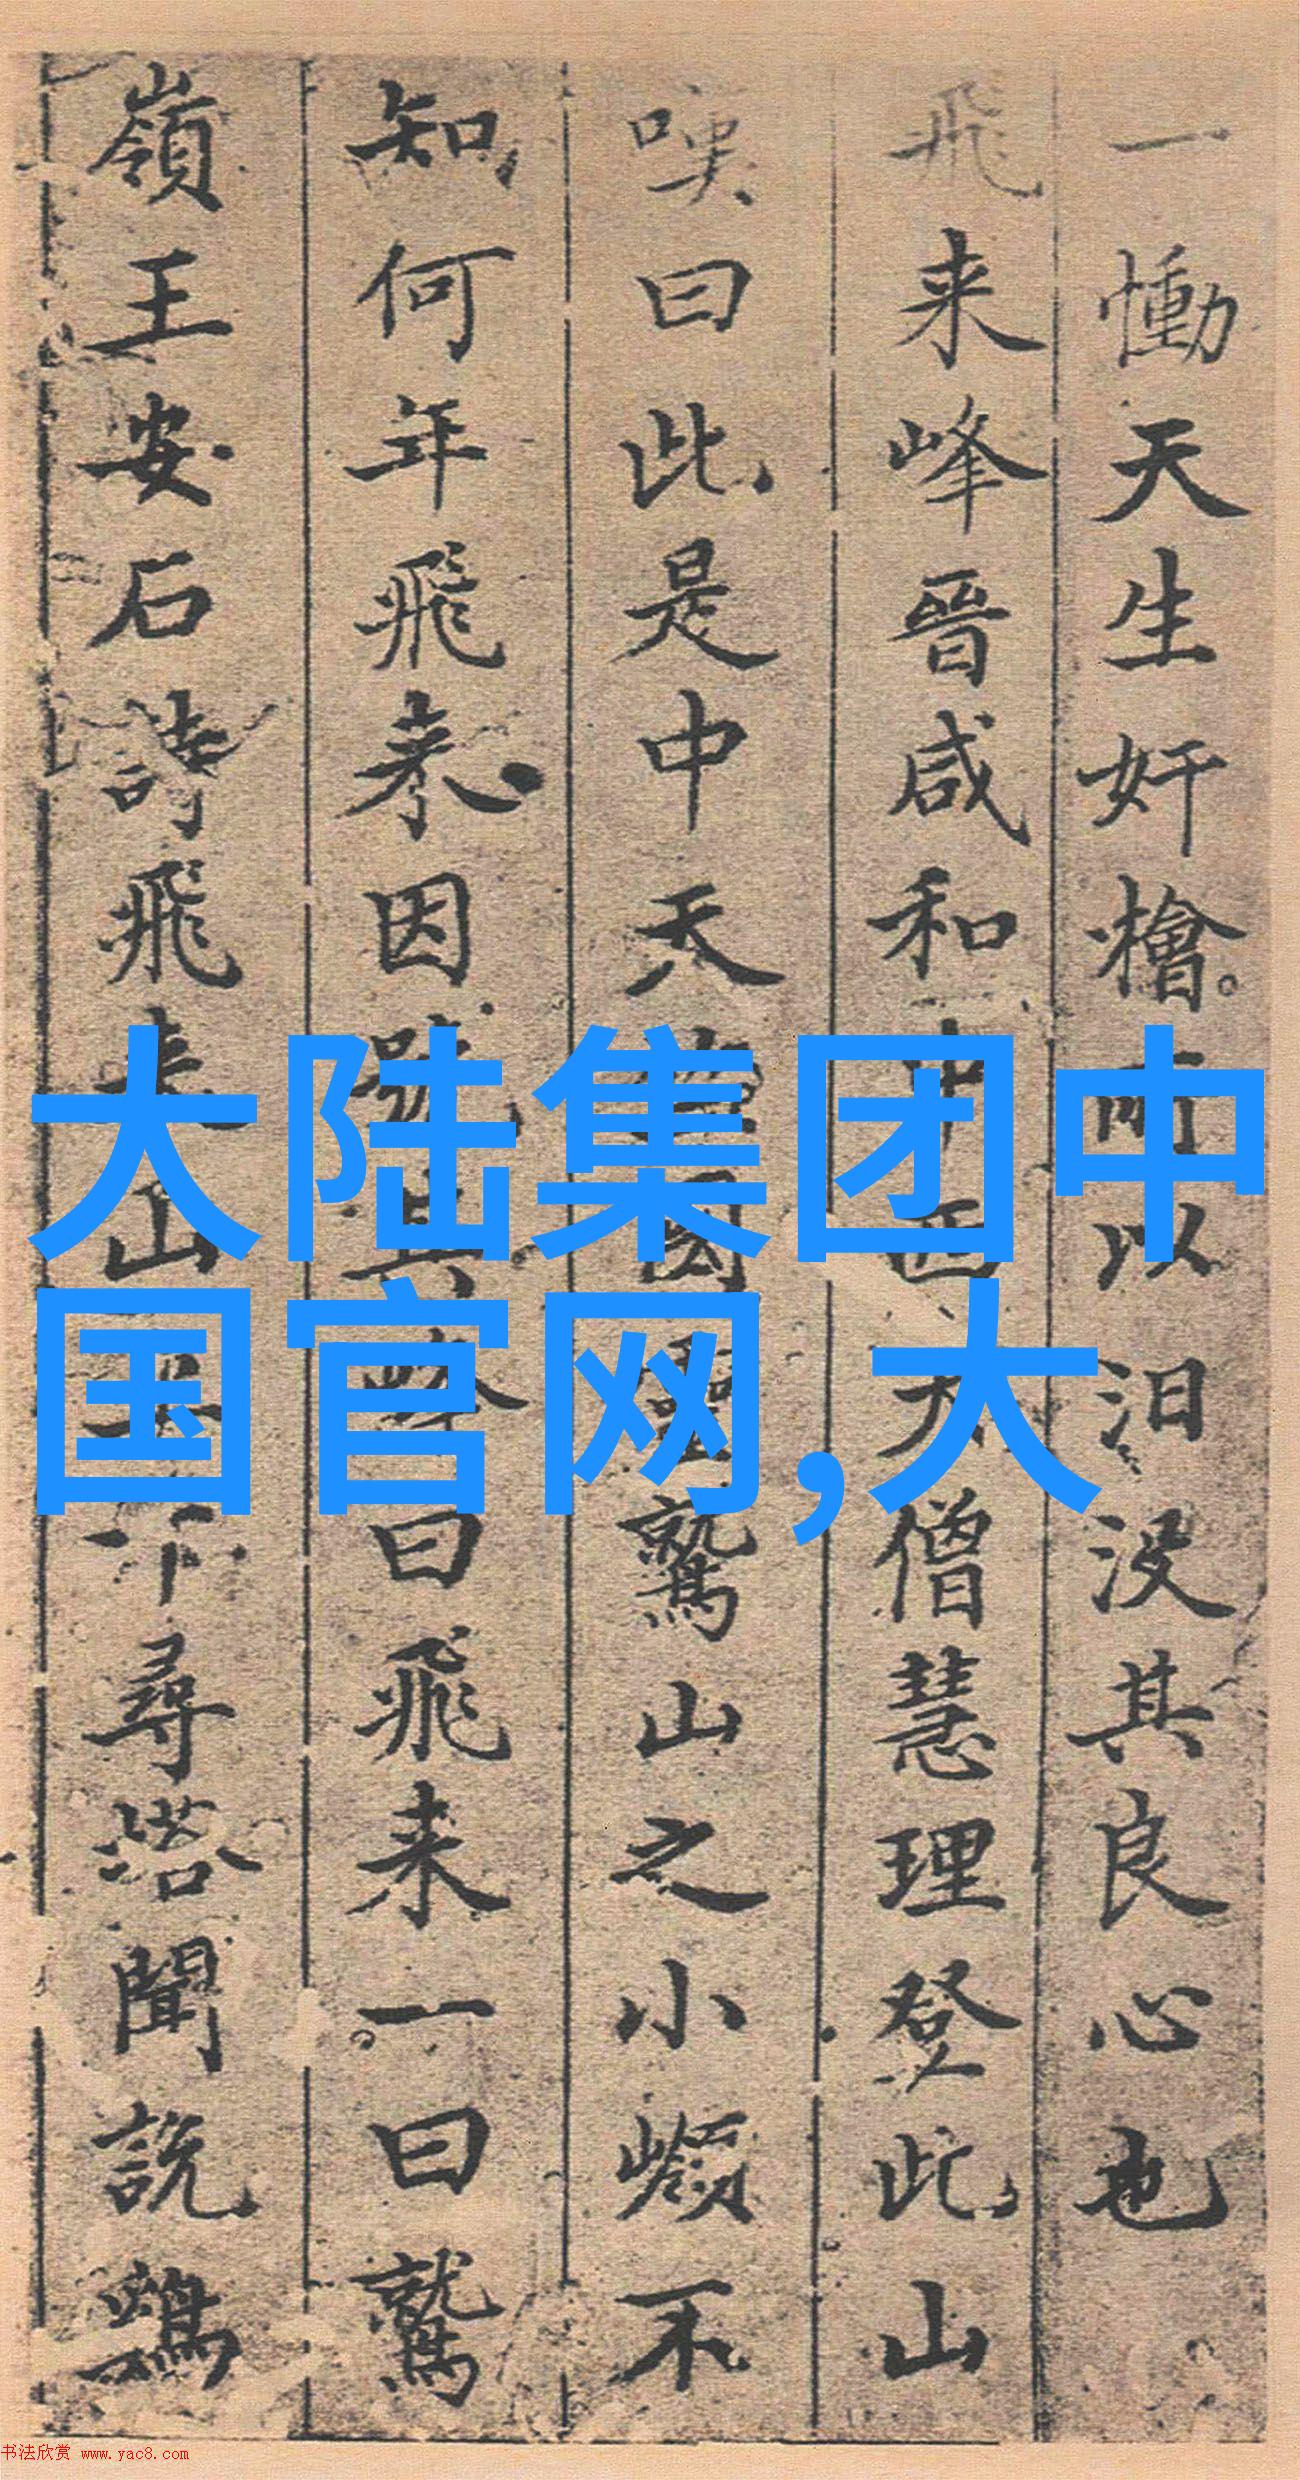 一慟天生奸檜所以汨没其良心也
飛来峰晉咸和中西天僧慧理登此山
嘆曰此是中天竺國靈鷲山之小嶺不
知何年飛来因號其峰曰飛来一曰鷲
嶺王安石詩飛来山上千尋塔聞説鷄
大陆集团中
国官网,大
书法欣赏 www.yac8.com